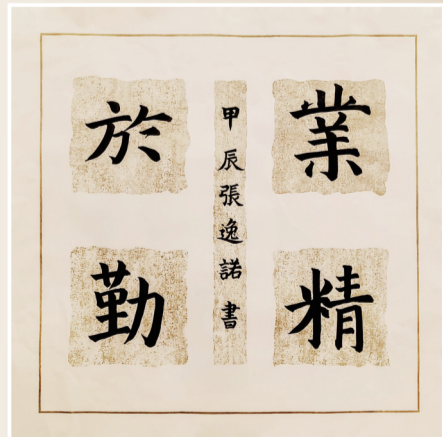 業精
於勤
甲辰張逸諾書